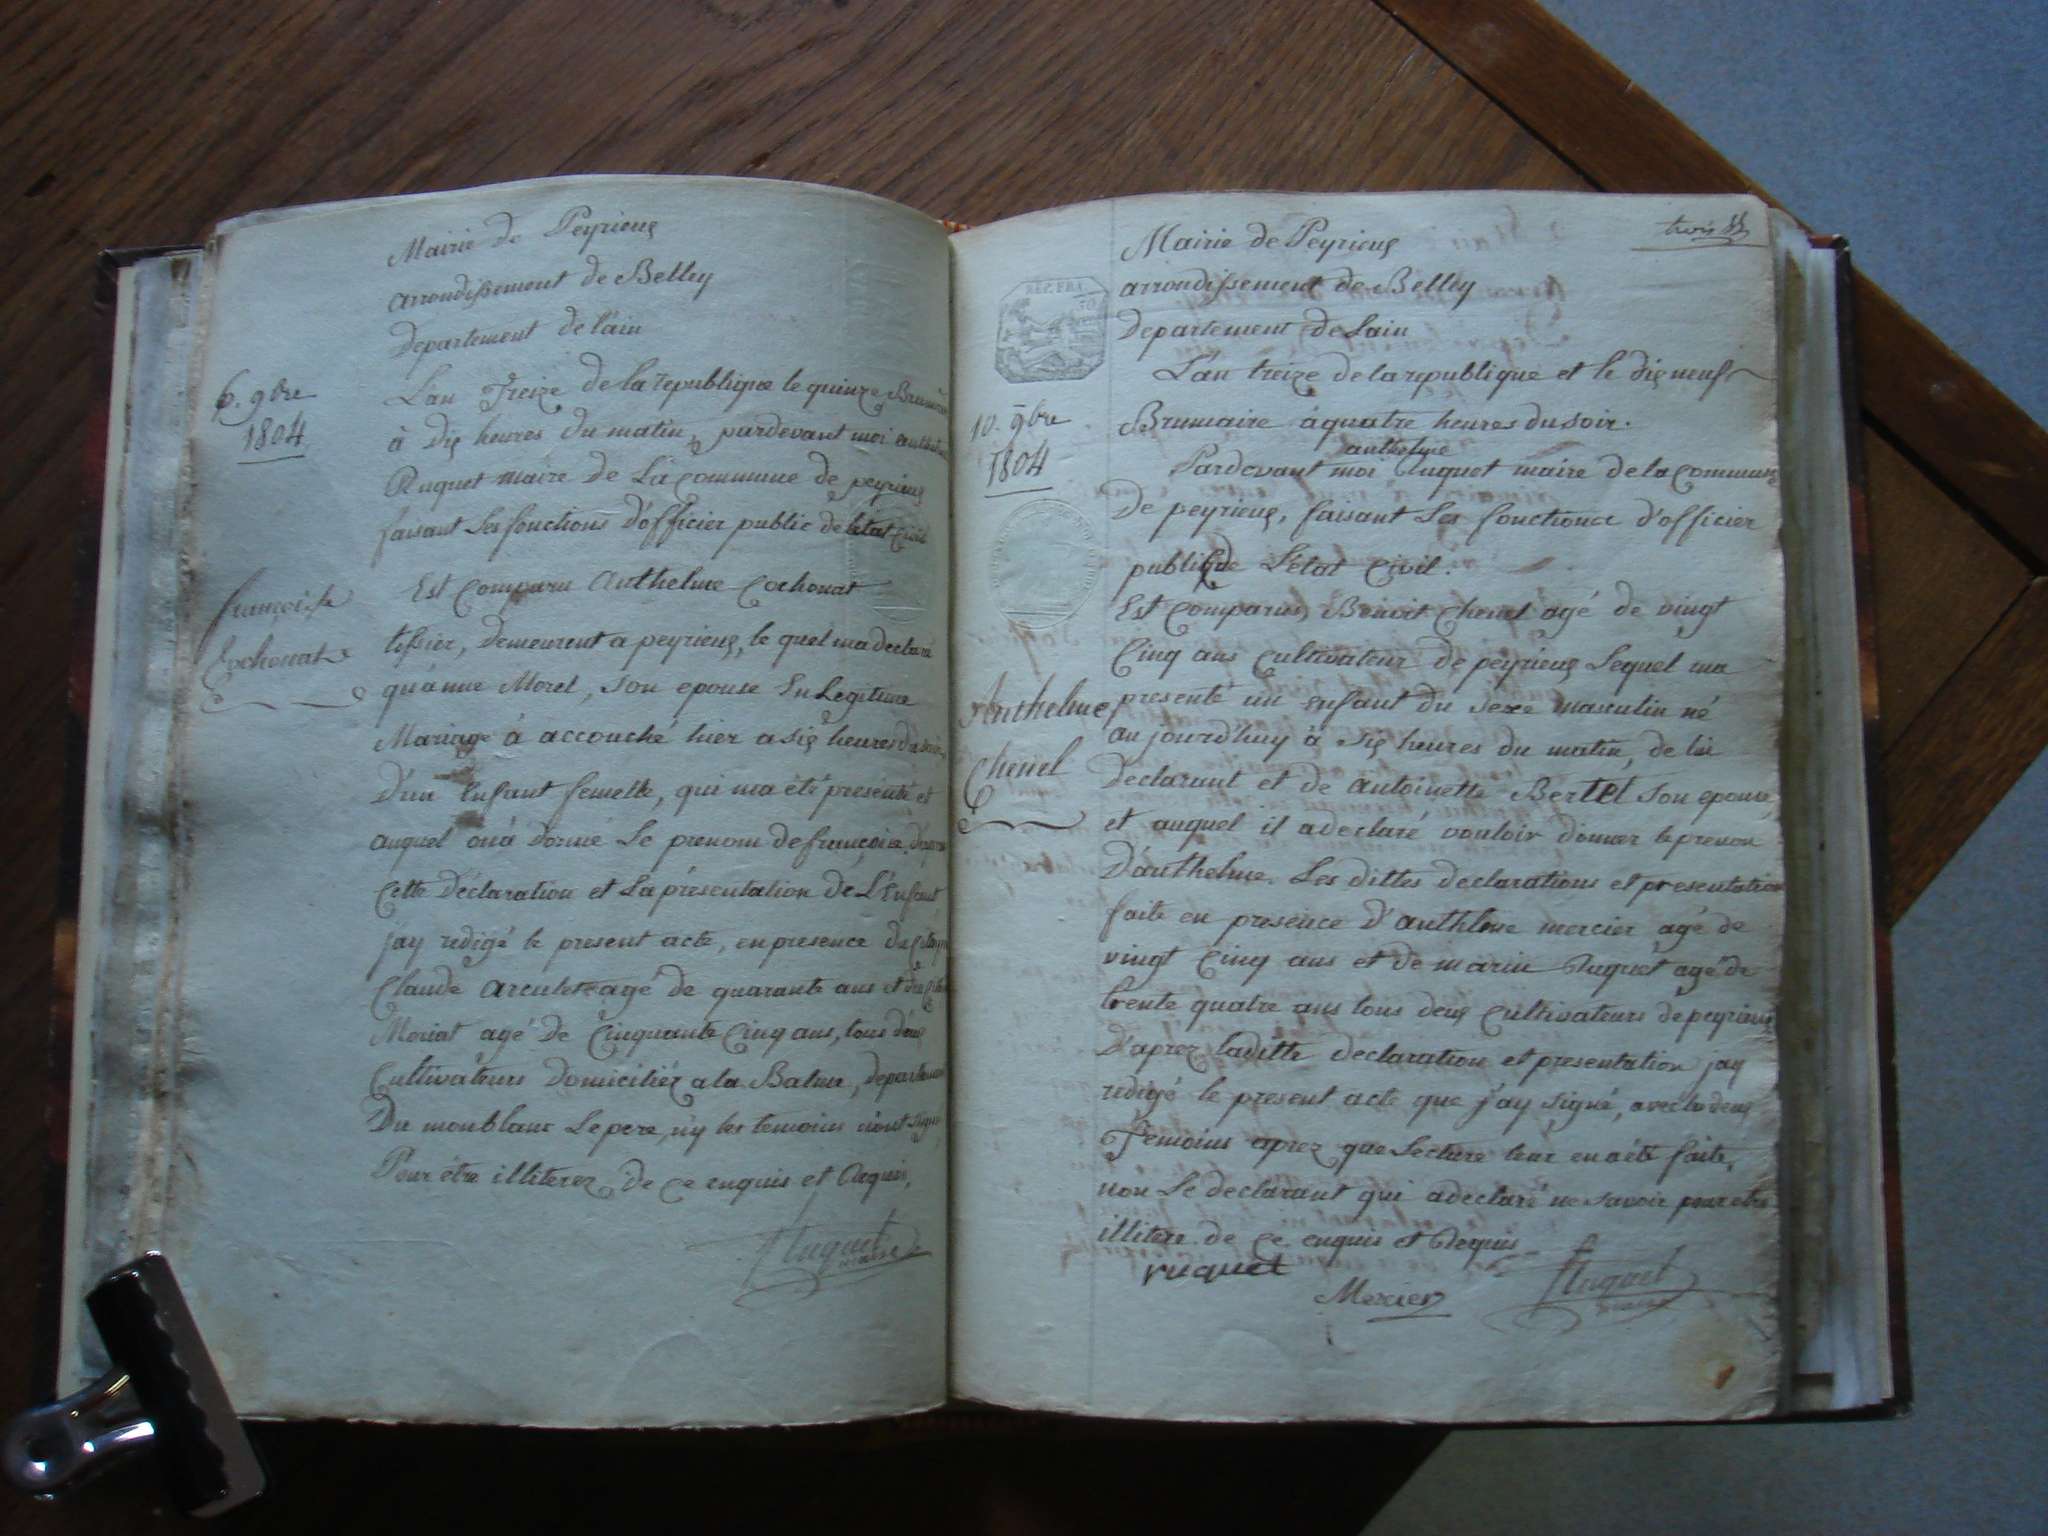 Mairie de Peyrieux
arrondissement de Belley
Departement de l'ain
L'an Treize de la republique le quinze
à dix heures du matin, pardevant moi
Ruquet maire de la commune de peyrieux
faisant les fonctions d'officier public de létat civil
Est comparu Anthelme Cochonat
tissier, demeurent a peyrieux, le quel ma declaré
qu'anne Morel, son epouse En Legitime
Mariage à accouché hier a six heures du
D'un Enfant femelle, qui ma été presenté et
auquel on à donné le prenom de françoise
cette declaration et la présentation de L'Enfant
j'ay redigé le present acte, en presence du
Claude agé de quarante ans et
Moriat agé de cinquante cinq ans, tous deux
cultivateurs domiciliéz a la Balme,
Du monblanc Le pere, n'y les temoins n'ont signé
Pour être illiterez de ce enquis et Requis,
Ruquet
maire
6. 9bre
1804
françoise
Cochonat
trois
Mairie de Peyrieux
arrondissement de Belley
Departement de Lain
L'an treize de la republique et le dix neuf
Brumaire à quatre heures du soir.
anthelme
Pardevant moi Ruquet maire de la commune
de peyrieux, faisant les fonctions d'officier
public de l'état civil.
Est comparus Benoit Chenel agé de vingt
Cinq ans cultivateur de peyrieux Lequel ma
presenté un enfant du sexe masculin né
au jourdhuy à six heures du matin, de lui
declarant et de Antoinette Bertet son epouse
et auquel il a declaré vouloir donner le prenom
D'anthelme. Les dittes declarations et presentation
faite en presence D'anthelme mercier agé de
vingt cinq ans et de marin Ruquet agé de
trente quatre ans tous deux cultivateurs de peyrieux
D'aprez laditte declaration et presentation jay
redigé le present acte que j'ay signé, avec les deux
Temoins aprez que Lecture leur en a été faite,
non le declarant qui a declaré ne savoir pour etre
illitere de ce enquis et Requis
ruquet
Mercier
Ruquet
maire
REP. FRA.
10. 9bre
1804
Anthelme
Chenel